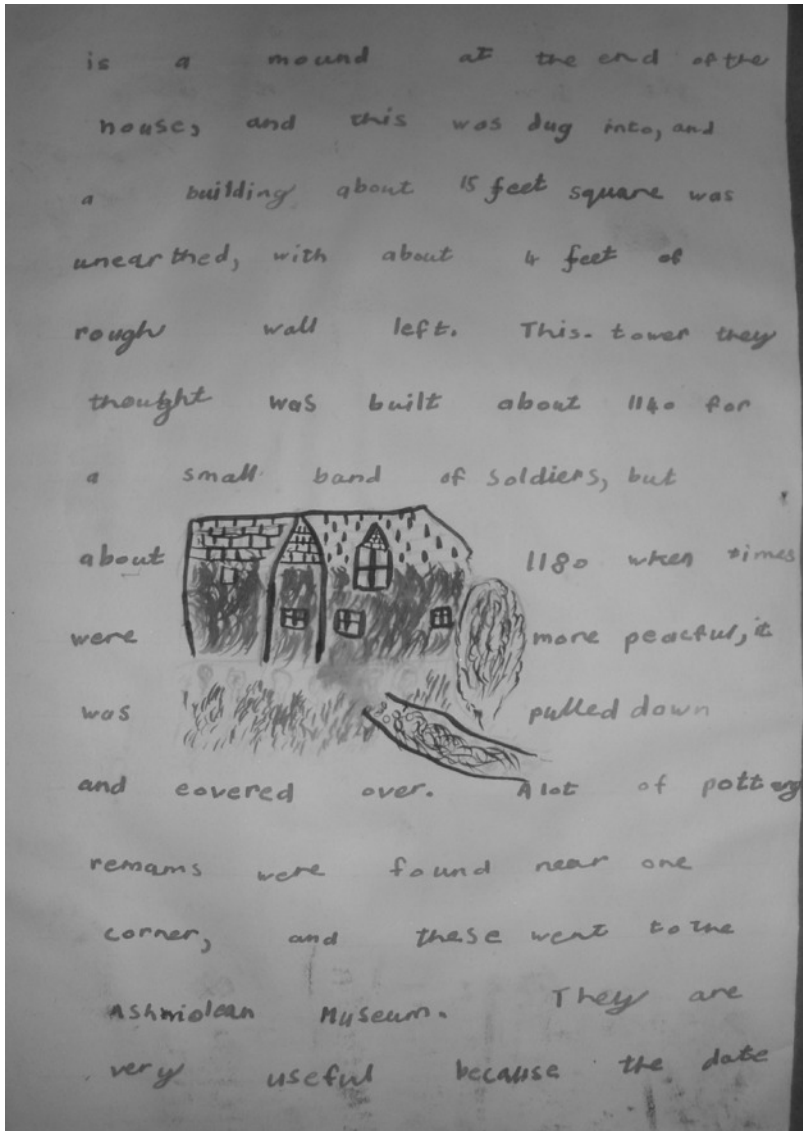 is a mound at the end of the
house, and this was dug into, and
a building about 15 feet square was
unearthed, with about 4 feet of
rough wall left. This. tower they
thought was built about 1140 for
a small band of soldiers, but
about 1180 when times
were more peacful, it
was pulled down
and covered over. A lot of pottery
remains were found near one
corner, and these went to the
Ashmolean Museum. They are
very useful because the date